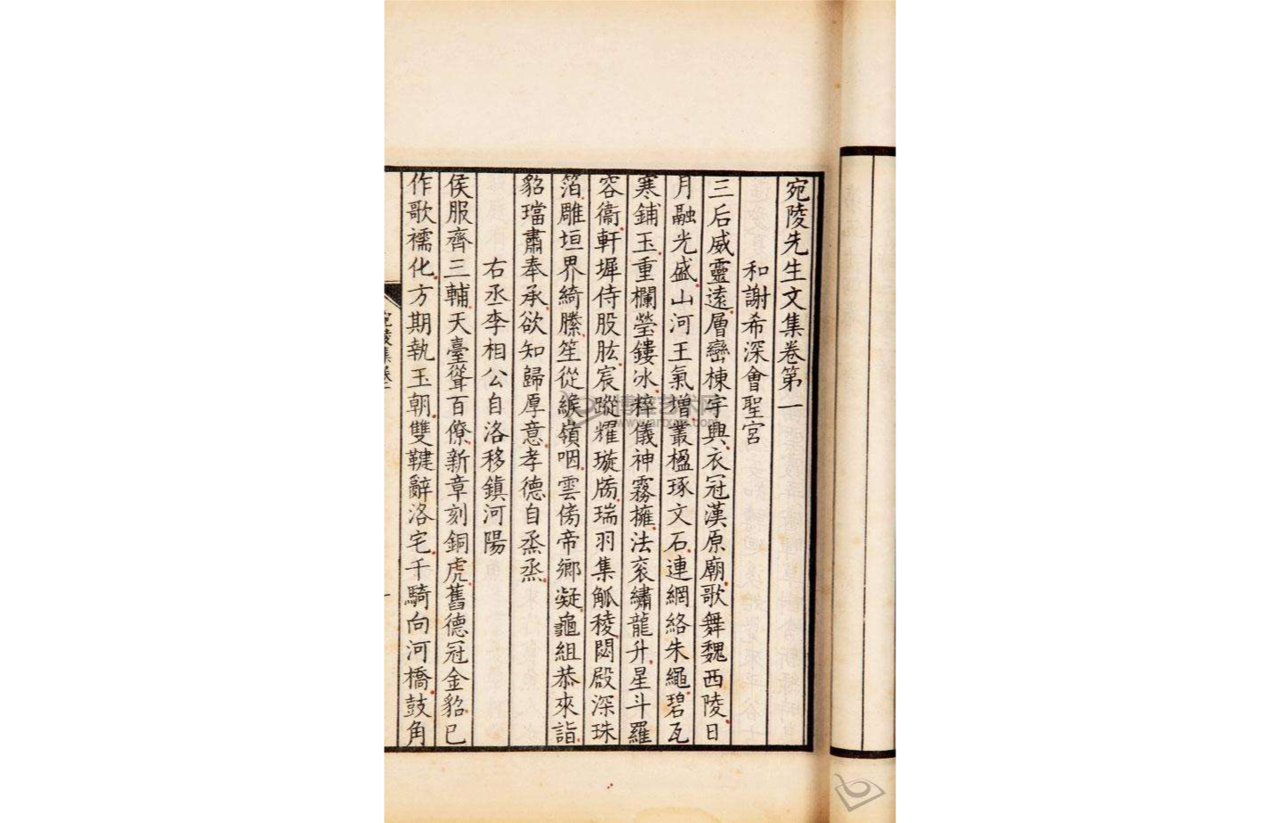 宛陵先生文集卷第一
和謝希深會聖宮
三后威靈遠層巒棟宇興衣冠漢原廟歌舞魏西陵日
月融光盛山河王氣增叢楹琢文石連網絡朱繩碧瓦
寒鋪玉重欄瑩鏤冰粹儀神霧擁法衮繡龍升星斗羅
容衞軒墀侍股肱宸蹤耀璇牓瑞羽集觚稜閟殿深珠
箔雕垣界綺縢笙從緱嶺咽雲傍帝鄉凝龜組恭來詣
貂璫肅奉承欲知歸厚意孝德自烝烝
右丞李相公自洛移鎮河陽
侯服齊三輔天臺聳百僚新章刻銅虎舊德冠金貂已
作歌襦化方期執玉朝雙鞬辭洛宅千騎向河橋鼓角
宛陵集卷一
博宝艺术网